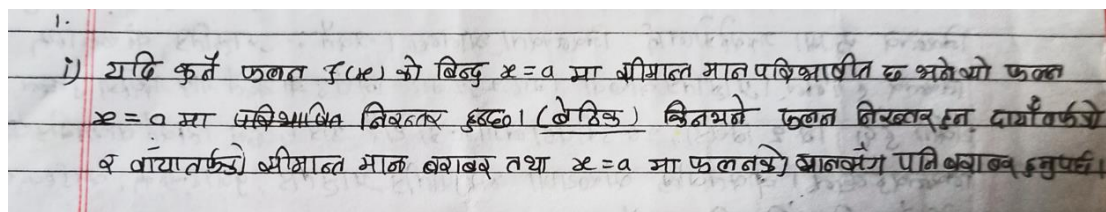 1.
i) यदि कुनै फलन f(x) को बिन्दु x=a मा सीमान्त मान परिभाषीत छ भने यो फलन
x=a मा परिभाषित निरन्तर हुन्छ। (बेठिक) किनभने फलन निरन्तर हुन दायाँतर्फको
र बायाँतर्फको सीमान्त मान बराबर तथा x=a मा फलनको मानसँग पनि बराबर हुनुपर्छ।